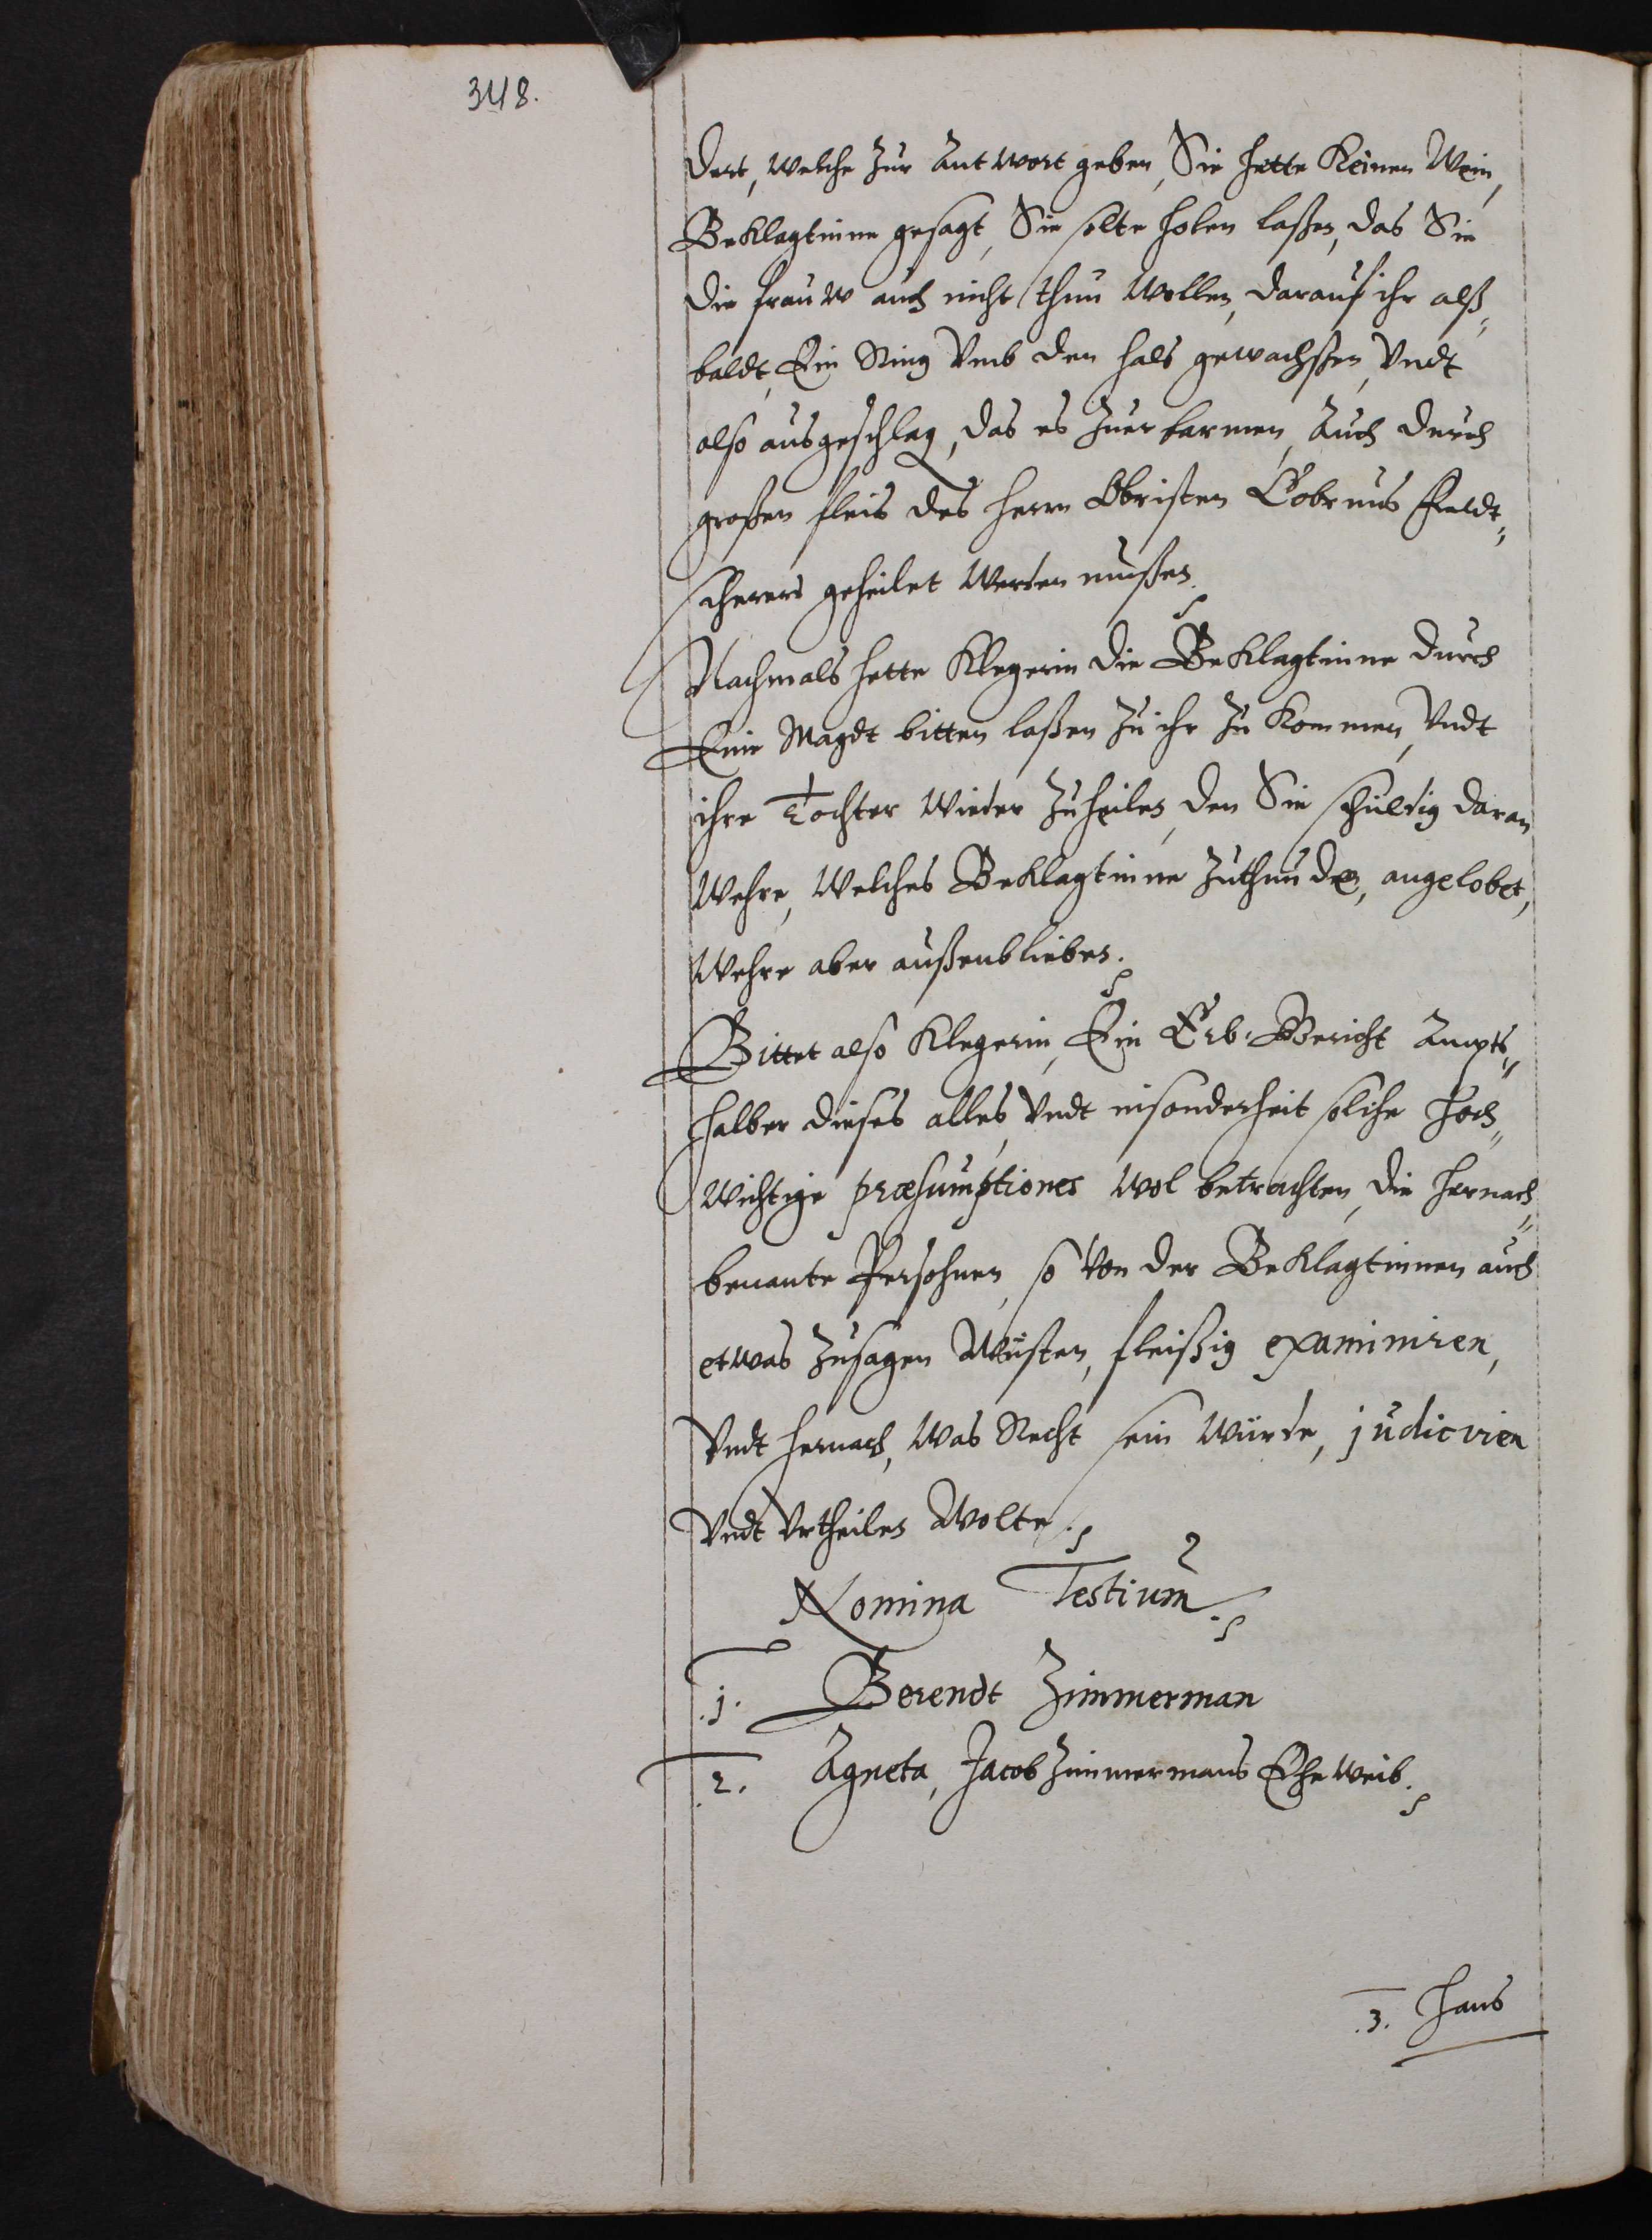 348.
dert, Welche Zur Antwort geben, Sie hette Keinen Wein,
BeKlagtinne gesagt, Sie solte holen laßen, das Sie
die frauw auch nicht thun Wollen, darauf ihr alß„
baldt, Ein Ring Vmb den hals gewachßen, Vndt
also ausgeschlag, das es Zuerbarmen, Auch durch
großen fleis des Herrn Obristen Cobrons Feldt„
scherers geheilet Werden mußen.
Nachmals hette Klegerin die BeKlagtinne durch
Eine Magdt bitten laßen Zu ihr Zu Kommen, Vndt
ihre Tochter Wieder Zuheilen, den Sie schuldig daran
Wehre, Welches BeKlagtinne Zuthunde, angelobet,
Wehre aber außenblieben.
Bittet also Klegerin, Ein Erb. Gericht Ampts„
halber dieses alles, Vndt insonderheit solche Hoch„
Wichtige præsumptiones Wol betrachten, die hernach„
benante Persohnen, so Von der BeKlagtinnen auch
etwas Zusagen Wüsten, fleißig examiniren,
Vndt hernach, Was Recht sein Würde, judiciren
Vndt Vrtheilen Wolte.
Nomina Testium.
1. Berendt Zimmerman
2. Agneta, Jacob Zimmermans EheWeib.
3. Hans